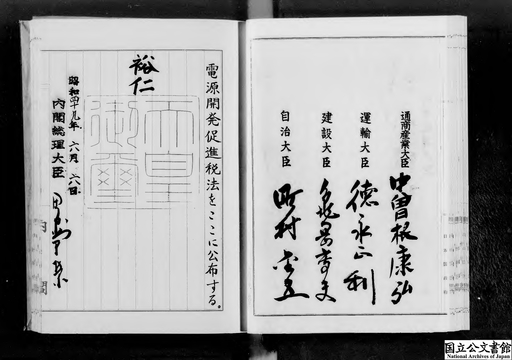 通商産業大臣 中曽根康弘
運輸大臣 徳永正利
建設大臣 亀岡高夫
自治大臣 町村金五
電源開発促進税法をここに公布する。
裕仁
天皇御璽
昭和四十九年 六月 六日
内閣総理大臣 田中角栄
国立公文書館
National Archives of Japan